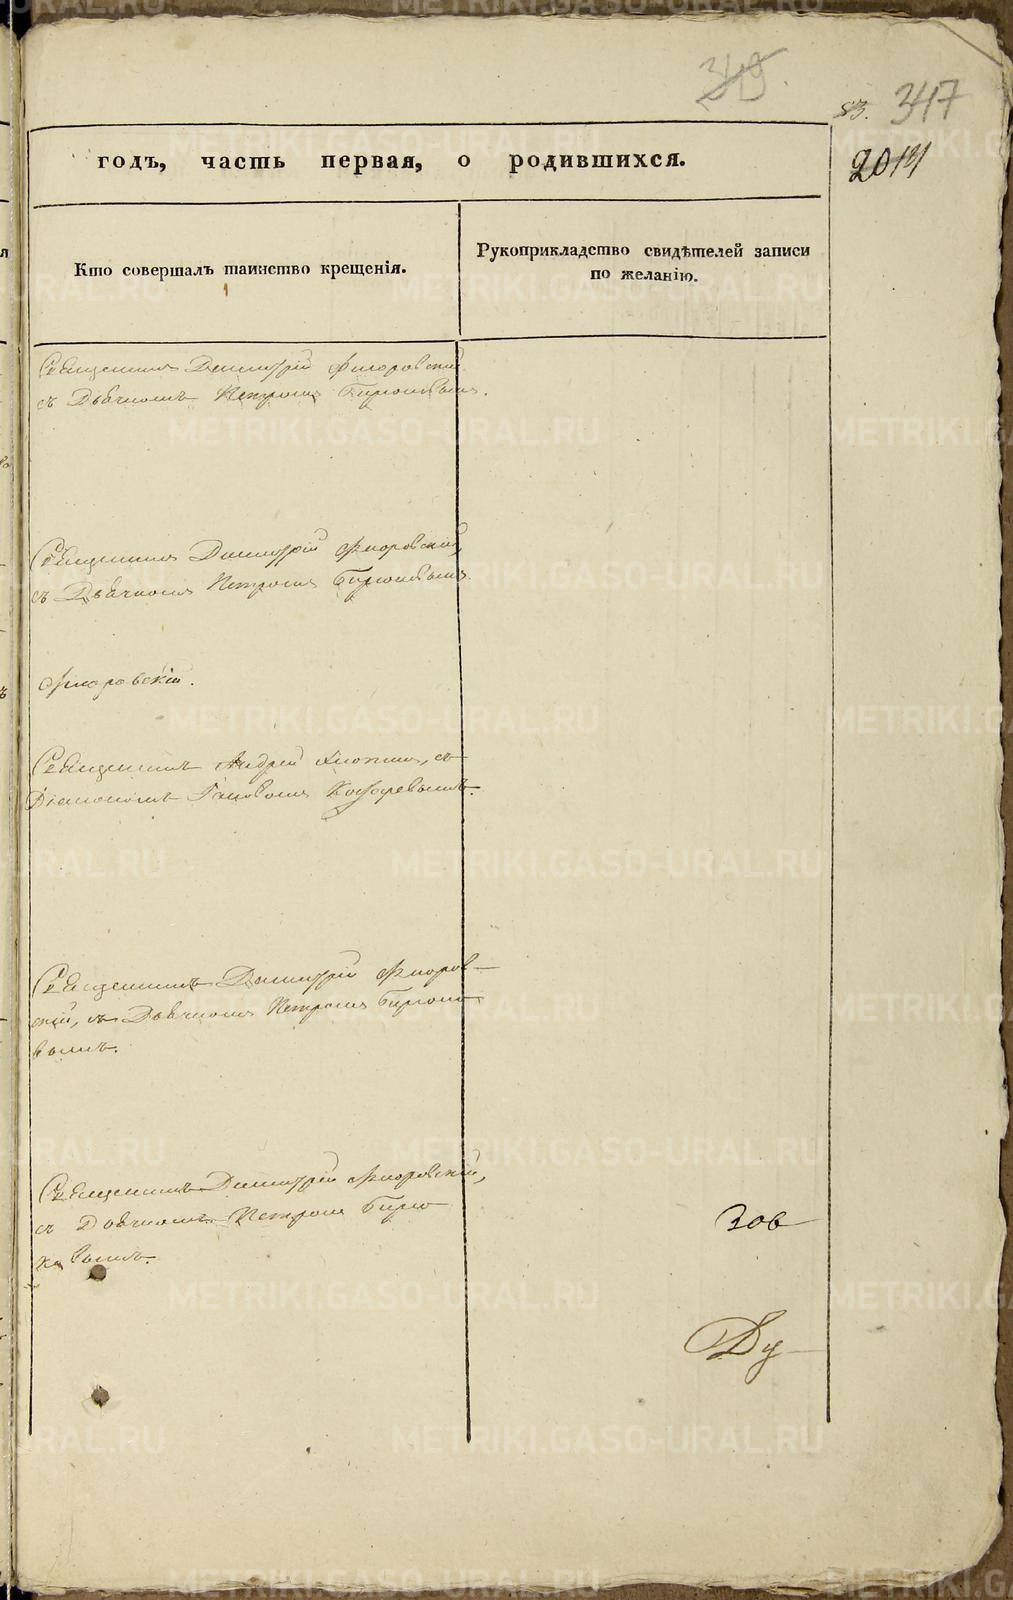 349.
83. 347
годъ, часть первая, о родившихся.
Кто совершалъ таинство крещенія.
Рукоприкладство свидѣтелей записи
по желанію.
Священникъ Димитрій Флоровскій
съ Дьячкомъ Петромъ Бирюковымъ.
Священникъ Димитрій Флоровскій,
съ Дьячкомъ Петромъ Бирюковымъ.
Флоровскій.
Священникъ Андрей съ
Діакономъ
Священникъ Димитрій Флоров-
скій, съ Дьячкомъ Петромъ Бирюко
вымъ.
Священникъ Димитрій Флоровскій,
съ Дьячкомъ Петромъ Бирю
ковымъ.
Зов
Ду
METRIKI.GASO-URAL.RU